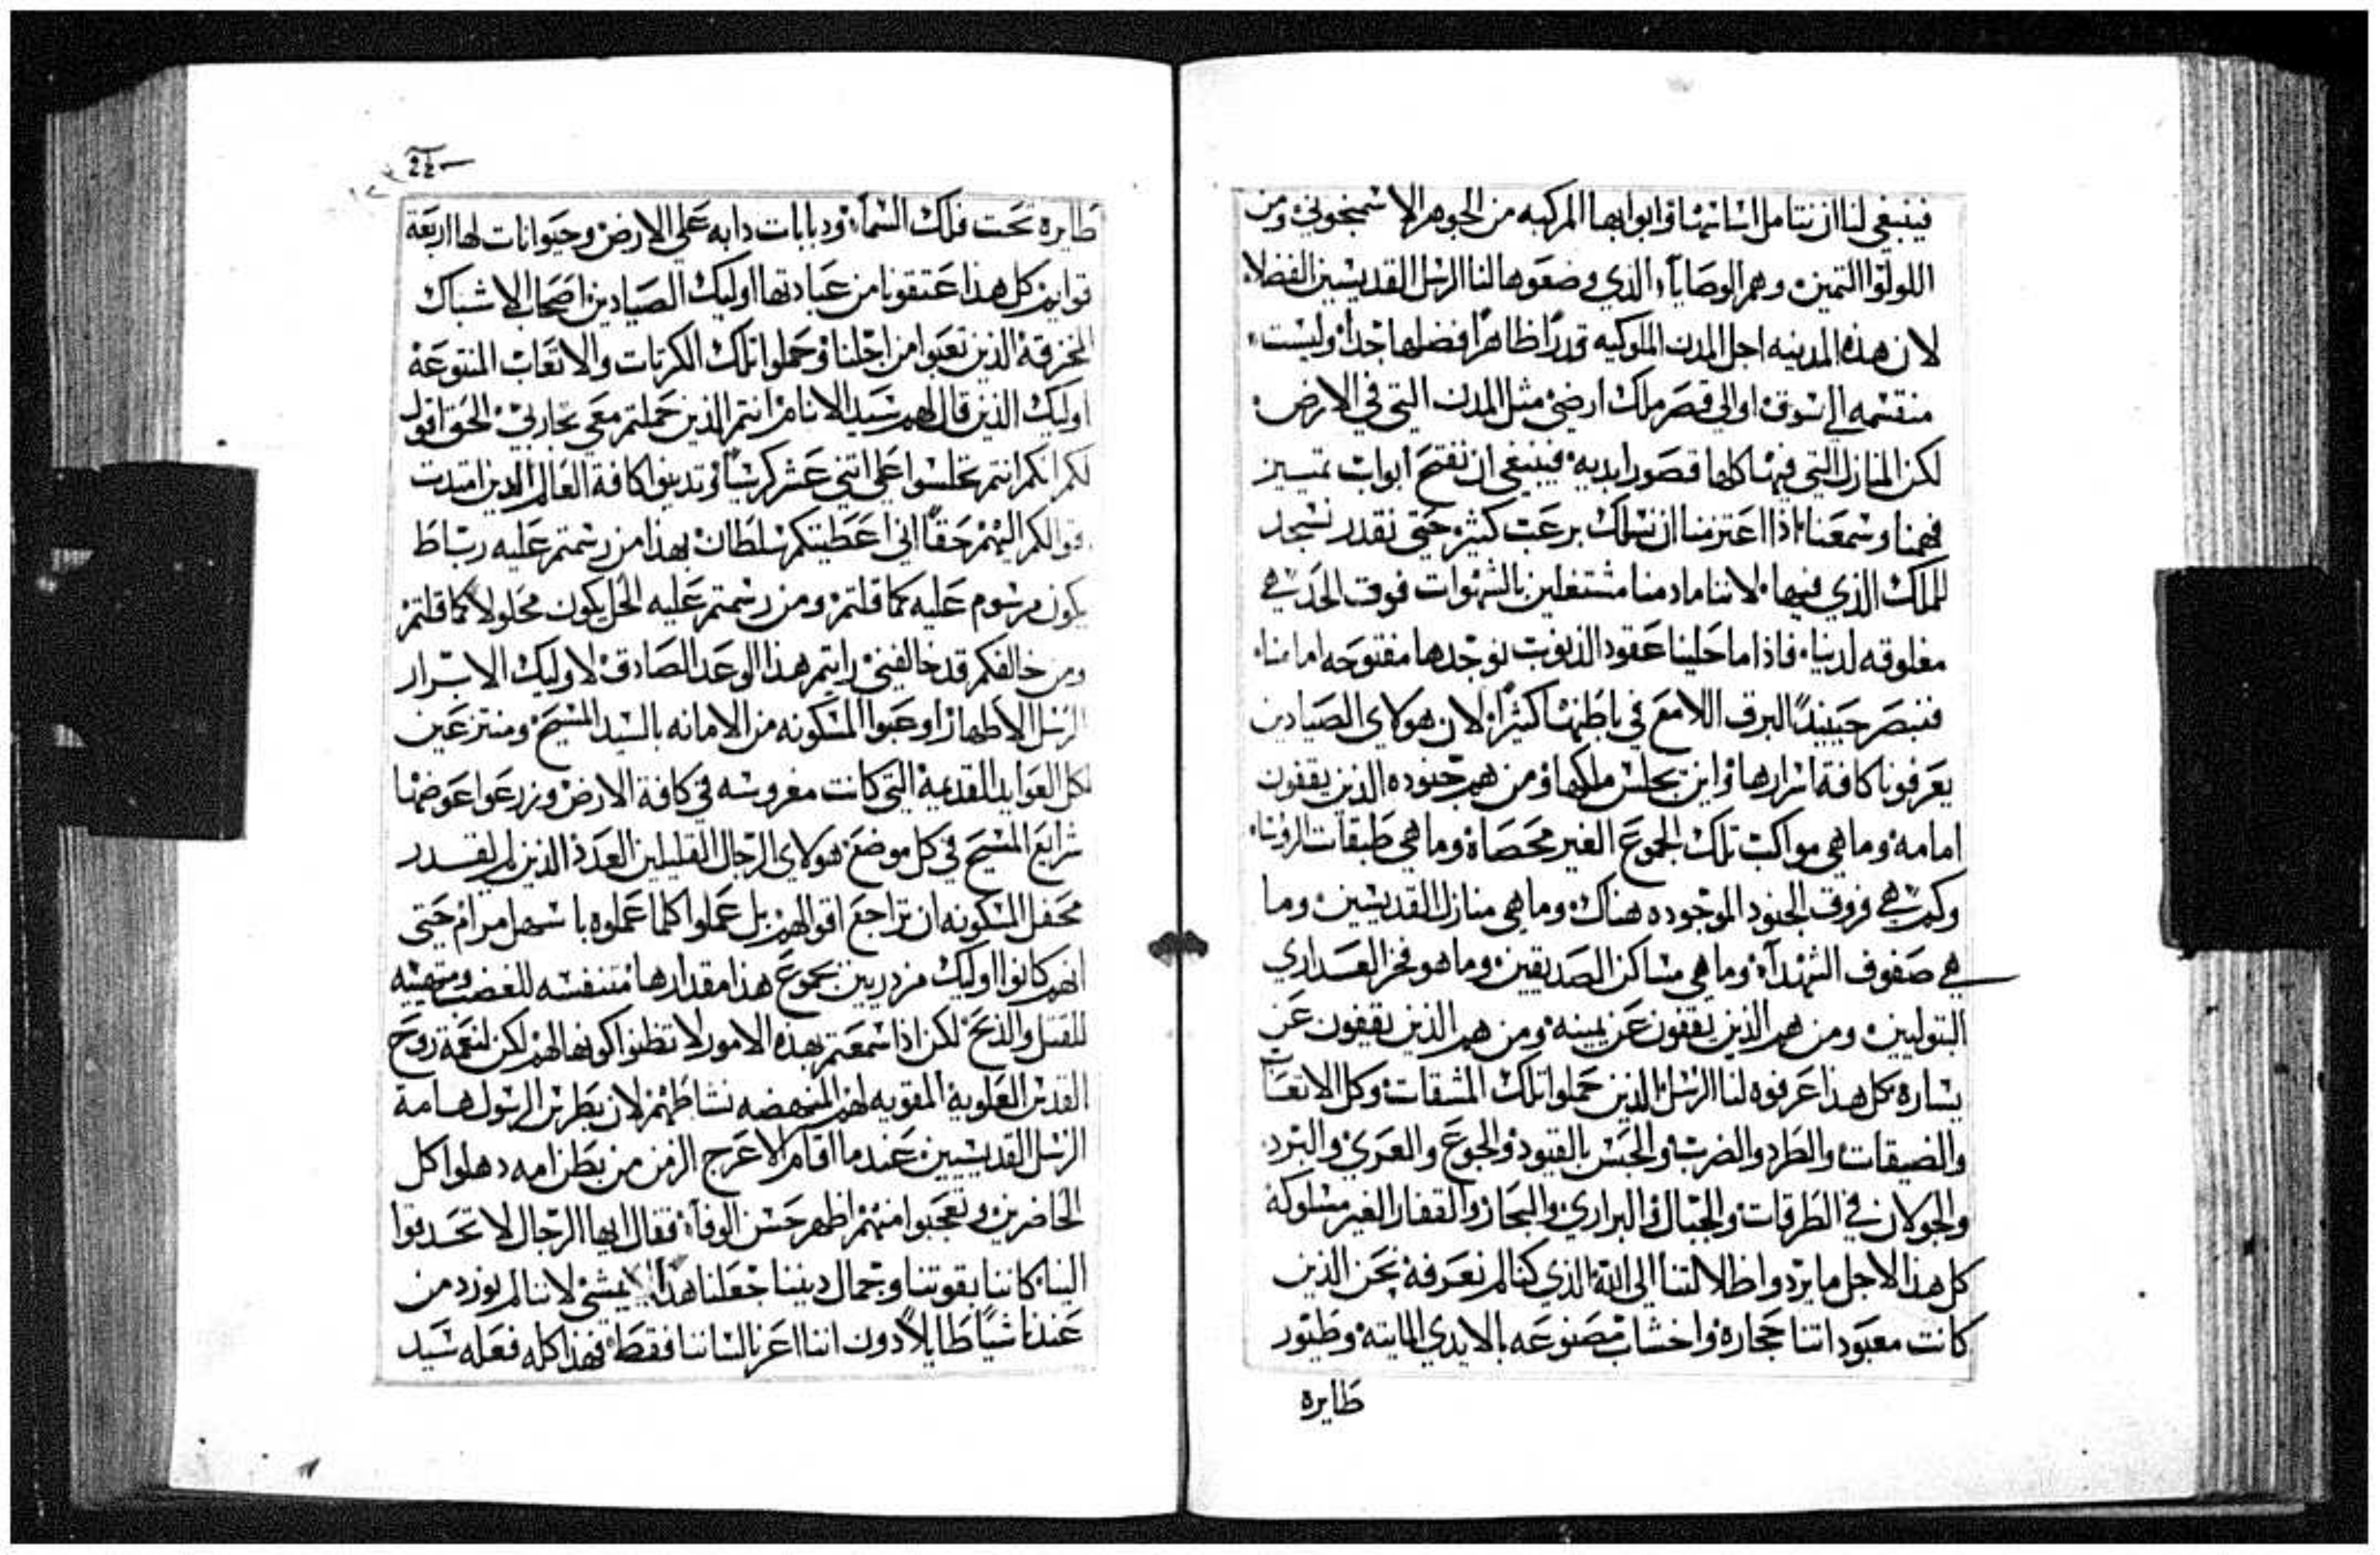 فينبغي لنا ان نتامل اساساتها وابوابها المركبه من الجوهر الاسمنجوني ومن
اللولوا الثمين، وهم الوصايا الذي وضعوها لنا الرسل القديسين الفضلا،
لان هذه المدينه اجل المدن الملوكيه قدرًا ظاهرًا فضلها جدًا وليست،
منقسمه الي سوق، او الي قصر ملك ارضي مثل المدن التي في الارض،
لكن المنازل التي فيها كلها قصور ابديه، فينبغي ان نفتح ابواب تمييز
فهمنا وسمعنا، اذا اعتزمنا ان نسلك برعب كثير، حتي نقدر نسجد
للملك الذي فيها، لاننا ما دمنا مشتغلين بالشهوات فوق الحد هي
مغلوقه لدينا، فاذا ما حلينا عقود الذنوب نوجدها مفتوحه امامنا،
فنبصر حينيدًا البرق اللامع في باطنها كثيرًا، لان هولاي الصيادين
يعرفونا كافة اسرارها، واين يجلس ملكها، ومن هم جنوده الذين يقفون
امامه، وما هي مواكب تلك الجموع الغير محصاة، وما هي طبقات الروسا،
وكم هي فروق الجنود الموجوده هناك، وما هي منازل القديسين، وما
هي صفوف الشهدآ، وما هي مساكن الصديقين، وما هو فخر العداري
البتوليين، ومن هم الذين يقفون عن يمينه، ومن هم الذين يقفون عن
يساره، كل هذا عرفوه لنا الرسل، الذين حملوا تلك المشقات، وكل الاتعاب
والضيقات، والطرد والضرب، والحبس بالقيود، والجوع والعري، والبرد،
والجولان في الطرقات، والجبال والبراري، والبحار، والقفار الغير مسلوكة
كل هذا لاجل ما يردوا ظلالتنا الي الله، الذي كنا لم نعرفه، نحن الذين
كانت معبوداتنا حجاره، واخشاب مصنوعه بالايدي المايته، وطيور
طايره
24
طايره تحت فلك السمآ، ودبابات دابه علي الارض، وحيوانات لها اربعة
قوايم، كل هذا عتقونا من عبادتها اوليك الصيادين، اصحاب الاشباك
المخزقة، الذين تعبوا من اجلنا، وحملوا تلك الكربات والاتعاب المنتوعة
اوليك الذين قال لهم سيد الانام، انتم الذين حملتم معي تجاربي، الحق اقول
لكم انكم انتم تجلسوا علي اتني عشر كرسيًا، وتدينوا كافة العالم الذين امتدت
اقوالكم اليهم، حقًا اني اعطيتكم سلطان بهذا، من رسمتم عليه رباط
يكون مرسوم عليه كما قلتم، ومن رسمتم عليه الحل يكون محلولا كما قلتم
ومن خالفكم قد خالفني، رايتم هذا الوعد الصادق، لاوليك الابرار
الرسل الاطهار، اوعبوا المسكونه من الامانه بالسيد المسيح، ومنتزعين
لكل العوايد القديمة التي كانت مغروسه في كافة الارض، وزرعوا عوضها
شرايع المسيح في كل موضع، هولاي الرجال القليلين العدد، الذين لم يقدر
محفل المسكونه ان تراجع اقوالهم، بل عملوا كلما عملوه باسهل مرام، حتي
انهم كانوا اوليك مزدريين بجموع هذا مقدارها، متنفسه للغضب، ومتهييه
للقتل والذبح، لكن اذا سمعتم بهذه الامور لا تظنوا كونها لهم، لكن لنعمة روح
القدس العلوية المقويه لهم، المنهضه نشاطهم، لان بطرس الرسول هامة
الرسل القديسيين، عندما اقام الاعرج الزمن من بطن امه، دهلوا كل
الحاضرين، وتعجبوا منهم، اظهر حسن الوفآ، فقال ايها الرجال لا تحدقوا
الينا، كاننا بقوتنا، وجمال ديننا جعلنا هذا يمشي، لاننا لم نورد من
عندنا شيًا طايلاً دون اننا اعزنا لساننا فقط، فهذا كله فعله سيد